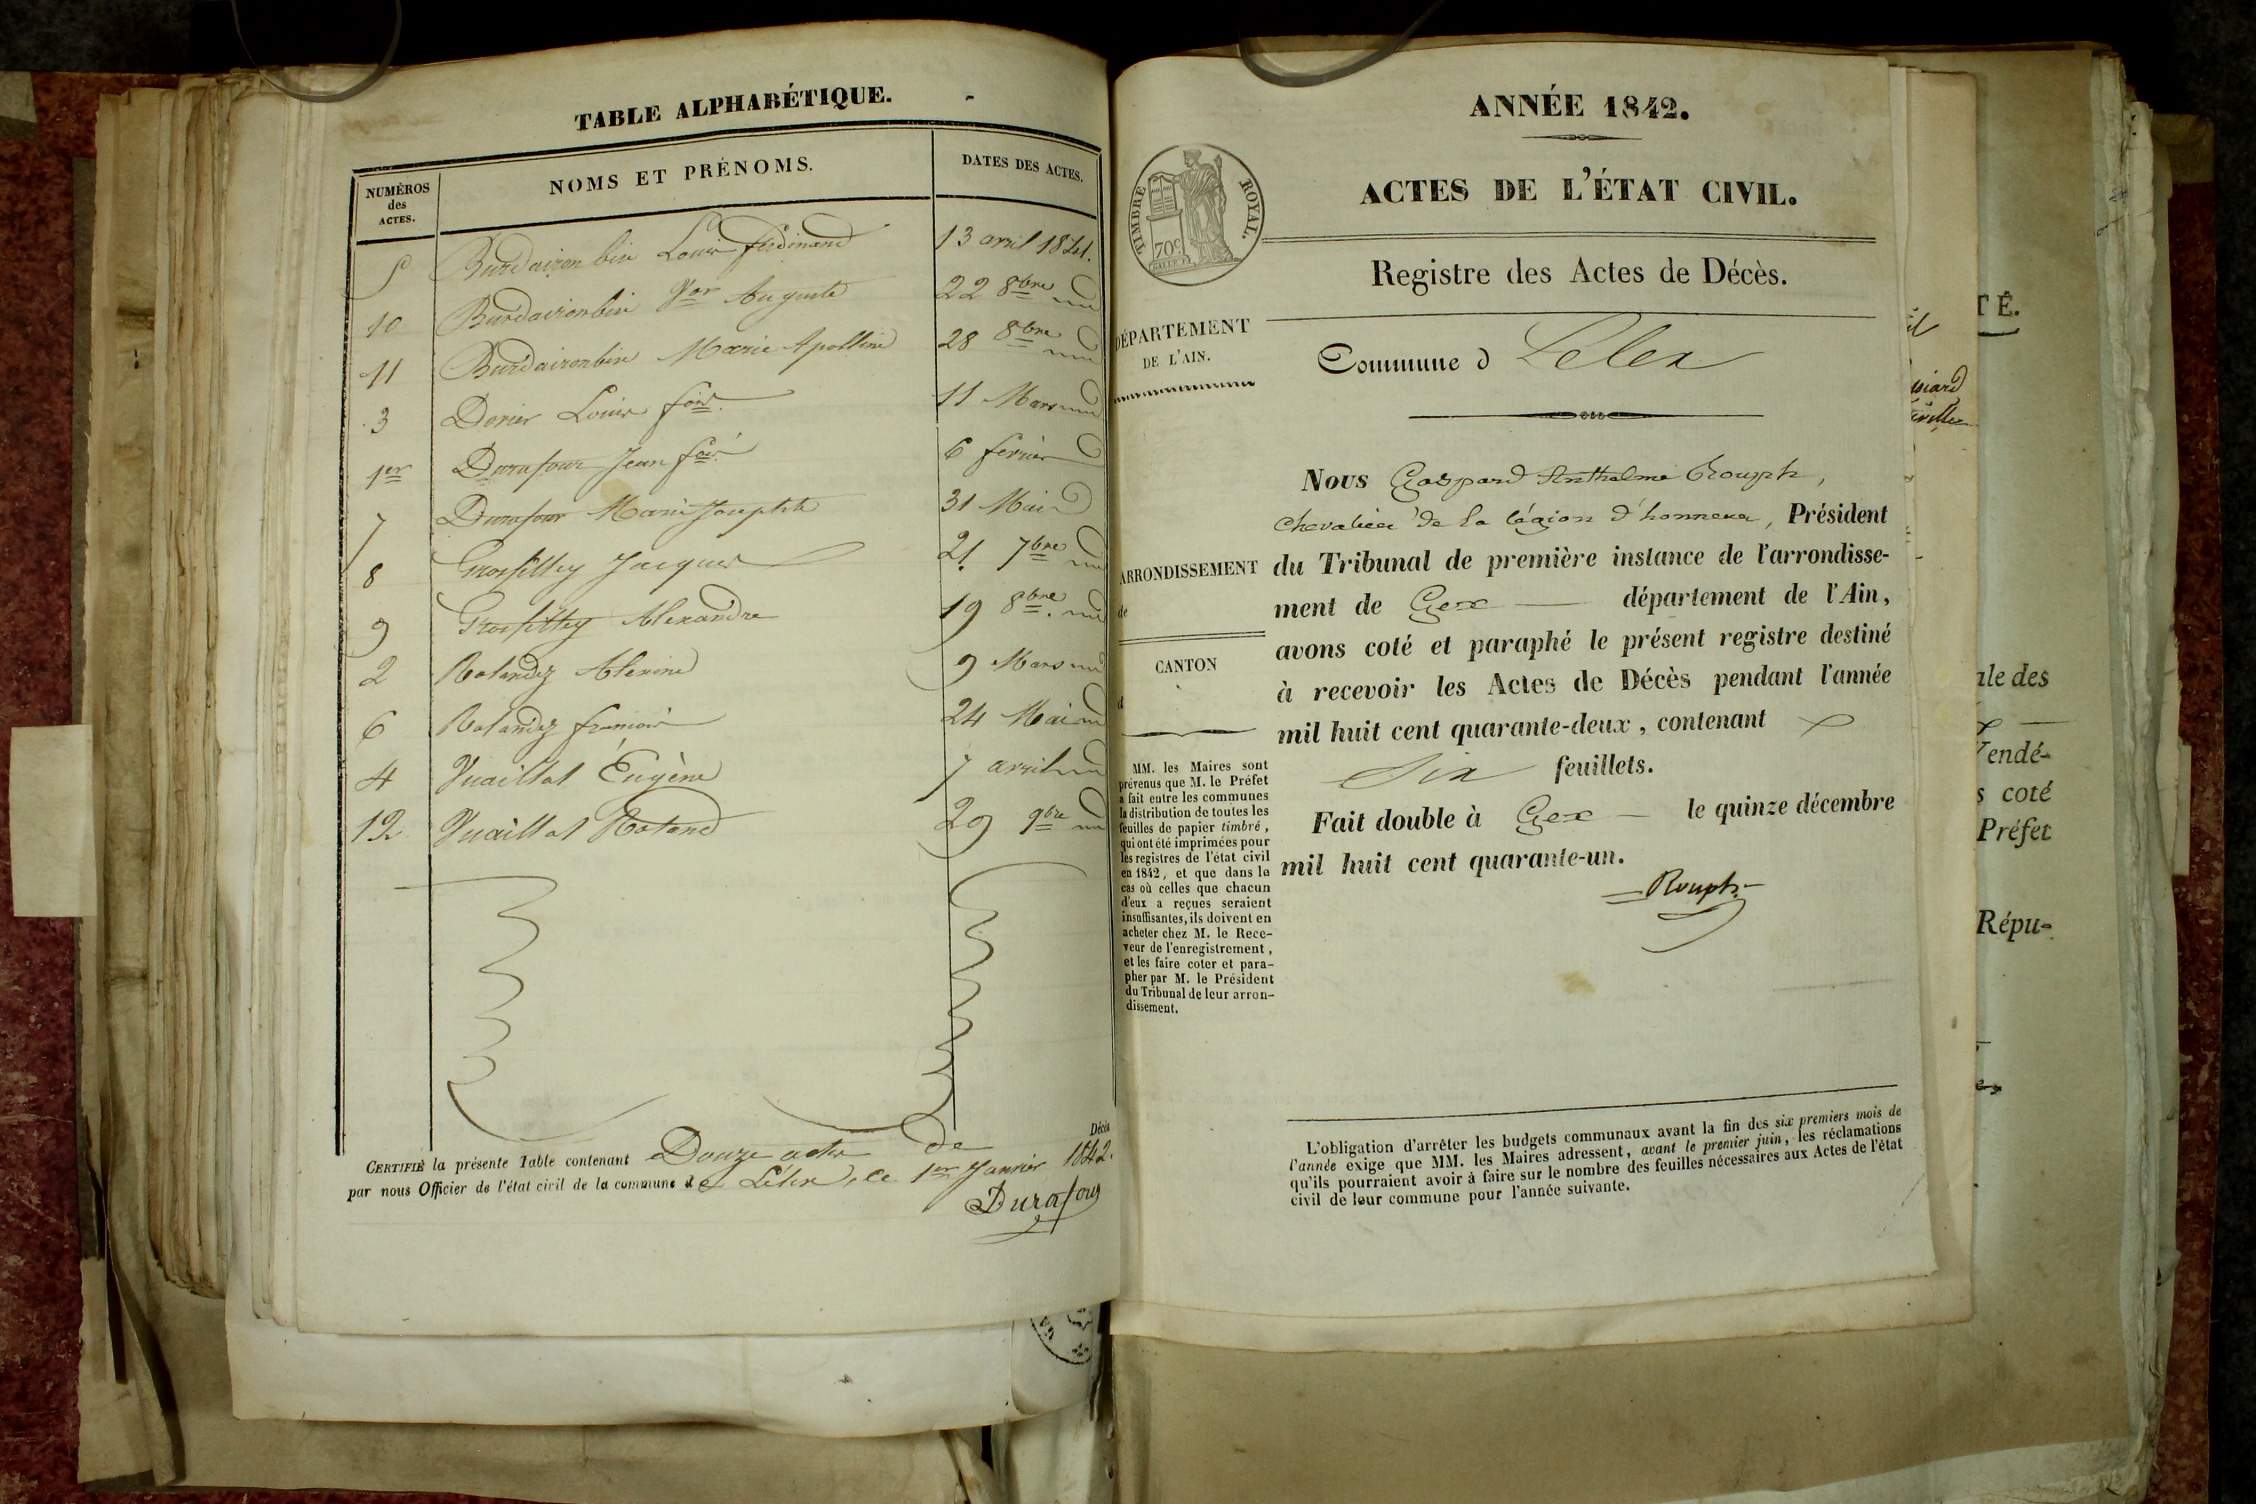 TABLE ALPHABÉTIQUE.
NUMÉROS des ACTES. NOMS ET PRÉNOMS. DATES DES ACTES.
5 Louis ferdinand 13 avril 1841.
10 Auguste 22 8bre
11 Marie Apolline 28 8bre
3 Dorier Louis fois. 11 Mars
1er Durafour Jean fois 6 fevrier
7 Durafour Marie Josephte 31 Mai
8 Grosfilley Jacques 21 7bre
9 Grosfilley Alexandre 19 8bre.
2 Rolandez 9 Mars
6 Rolandez francois 24 Mai
4 Vuaillat Eugène 7 avril
12 Vuaillat Roland 29 9bre
CERTIFIÉ la présente Table contenant Douze actes de Décès
par nous Officier de l'état civil de la commune de Lélex, ce 1er Janvier 1842.
Durafour
ANNÉE 1842.
ACTES DE L'ÉTAT CIVIL.
TIMBRE ROYAL.
70c
Registre des Actes de Décès.
DÉPARTEMENT
DE L'AIN.
Commune d Lelex
Nous Gaspard Anthelme Rouph,
chevalier de la légion d'honneur, Président
du Tribunal de première instance de l'arrondisse-
ment de Gex département de l'Ain,
avons coté et paraphé le présent registre destiné
à recevoir les Actes de Décès pendant l'année
mil huit cent quarante-deux, contenant
six feuillets.
Fait double à Gex le quinze décembre
mil huit cent quarante-un.
Rouph
ARRONDISSEMENT
de
CANTON
d
MM. les Maires sont
prévenus que M. le Préfet
a fait entre les communes
la distribution de toutes les
feuilles de papier timbré,
qui ont été imprimées pour
les registres de l'état civil
en 1842, et que dans le
cas où celles que chacun
d'eux a reçues seraient
insuffisantes, ils doivent en
acheter chez M. le Rece-
veur de l'enregistrement,
et les faire coter et para-
pher par M. le Président
du Tribunal de leur arron-
dissement.
L'obligation d'arrêter les budgets communaux avant la fin des six premiers mois de
l'année exige que MM. les Maires adressent, avant le premier juin, les réclamations
qu'ils pourraient avoir à faire sur le nombre des feuilles nécessaires aux Actes de l'état
civil de leur commune pour l'année suivante.
TÉ.
ale des
Vendé-
s coté
Préfet
Répu-